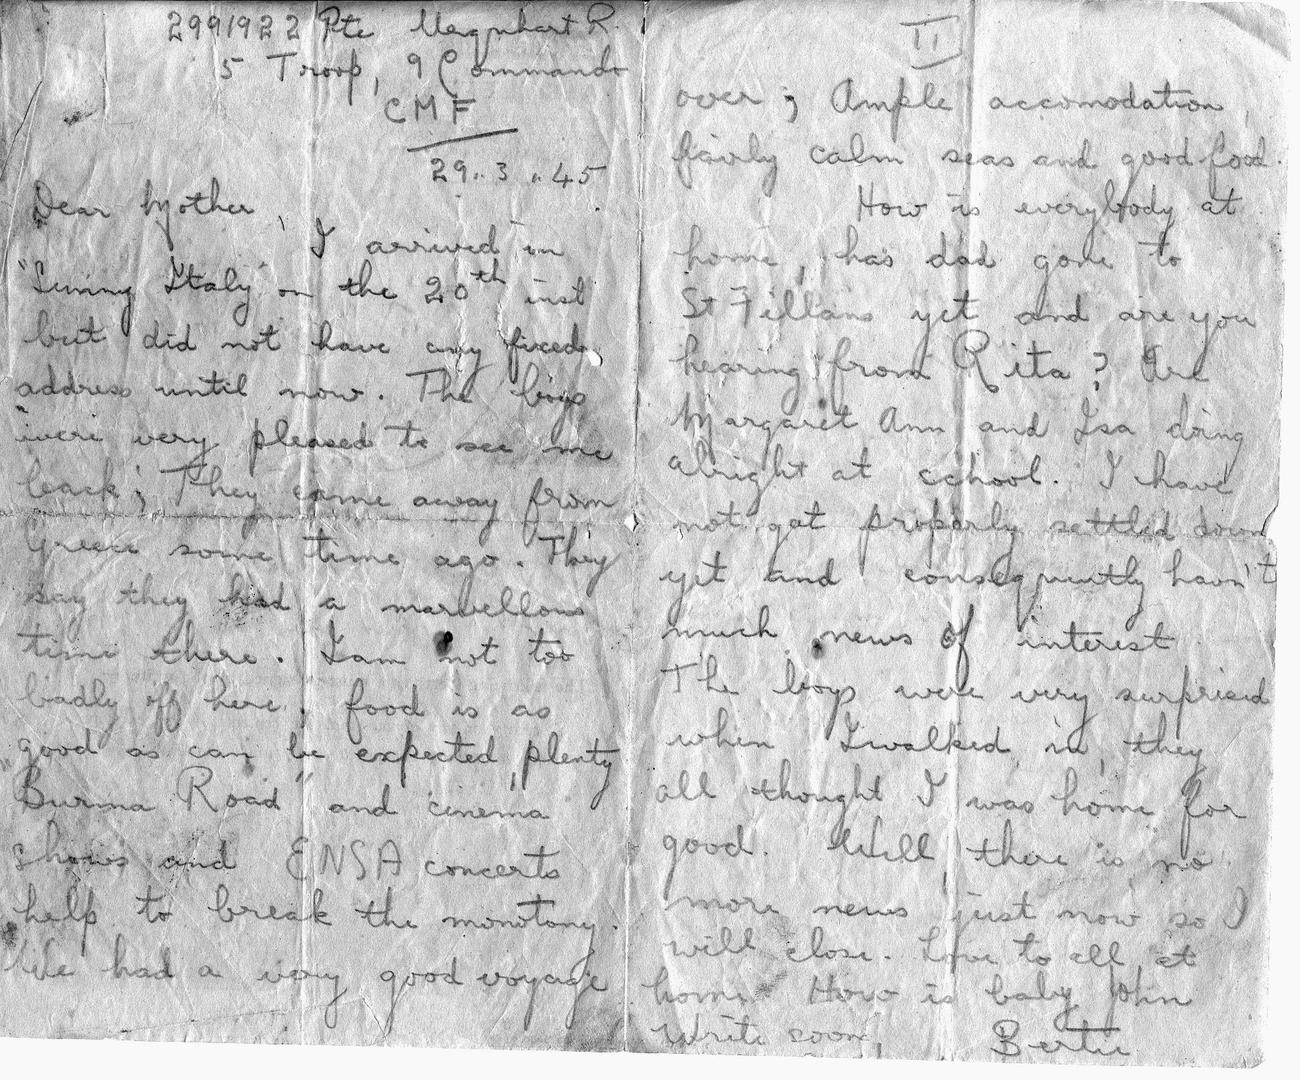 2991922 Pte Urquhart R.
5 Troop, 9 Commando
CMF
29..3..45
Dear Mother,
I arrived in
"Sunny Italy" on the 20th inst
but did not have any fixed
address until now. The boys
were very pleased to see me
back; They came away from
Greece some time ago. They
say they had a marvellous
time there. I am not too
badly off here, food is as
good as can be expected, plenty
"Burma Road" and cinema
shows and ENSA concerts
help to break the monotony.
We had a very good voyage
II
over; Ample accomodation,
fairly calm seas and good food.
How is everybody at
home, has dad gone to
St Fillans yet and are you
hearing from Rita? Are
Margaret Ann and Isa doing
alright at school. I have
not got properly settled down
yet and consequently havn't
much news of interest.
The boys were very surprised
when I walked in, they
all thought I was home for
good. Well, there is no
more news just now so I
will close. Love to all at
home. How is baby John
Write soon, Bertie